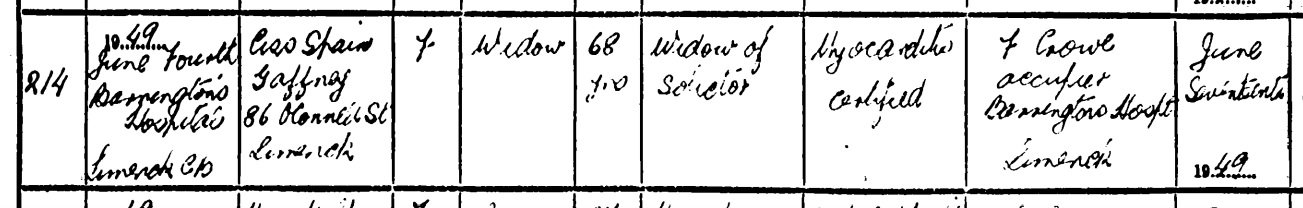 214
1949
June Fourth
Barrington's
Hospital
Limerick CB
Spain
Gaffney
86 O'Connell St
Limerick
F
Widow
68
yrs
Widow of
Solicitor
Myocarditis
certified
F Crowe
occupier
Barringtons Hospt
Limerick
June
Seventeenth
1949